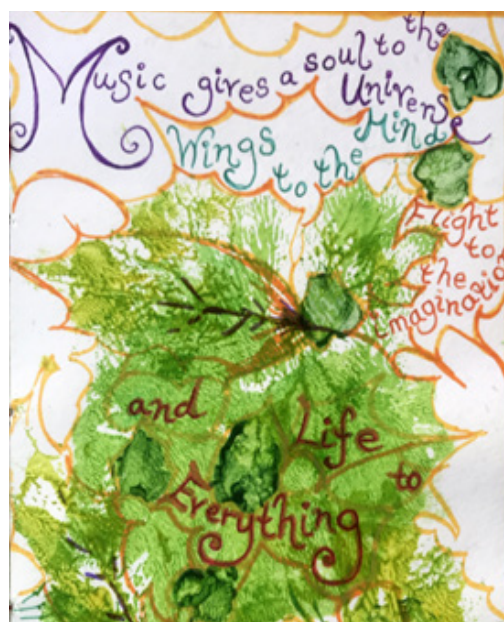 Music gives a soul to the
Universe
Wings to the Mind
Flight
to
the
imagination
and Life to
Everything